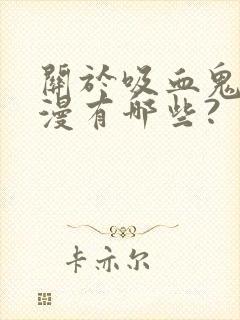 關於吸血鬼
漫有哪些?
卡亦尔